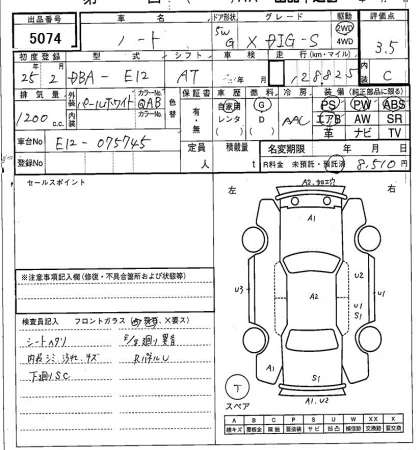 出品番号 車名 ドア形状 グレード 駆動 評価点
5074 ノート 5W G X DIG-S 2WD 4WD 3.5
初度登録 型式 シフト 車検 走行(km・マイル) 内装
25年2月 DBA-E12 AT 年 月 128,825 C
排気量 外装 パールホワイト カラーNo. QAB 色替 保証書 車歴 燃料 冷房 装備(純正部品に限る)
1200 c.c. 内装 カラーNo. 有・無 自家用 レンタ G D AAC PS PW ABS
エアB AW SR
革 ナビ TV
車台No E12-075745 定員 人 積載量 t 名変期限 年 月 日
登録No R料金 未預託・預託済 8,510円
セールスポイント 左 右
A1
U3 A2 U2 U1 S1 U1
※注意事項記入欄(修復・不具合箇所および状態等)
検査員記入 フロントガラス
シートヘタリ
下廻りSC
A1 S1
T
スペア
A1,U2
A B C P S U W X XX
線キズ 要板金 腐蝕 要塗装 サビ 凹凸 補修跡 要交換 交換済